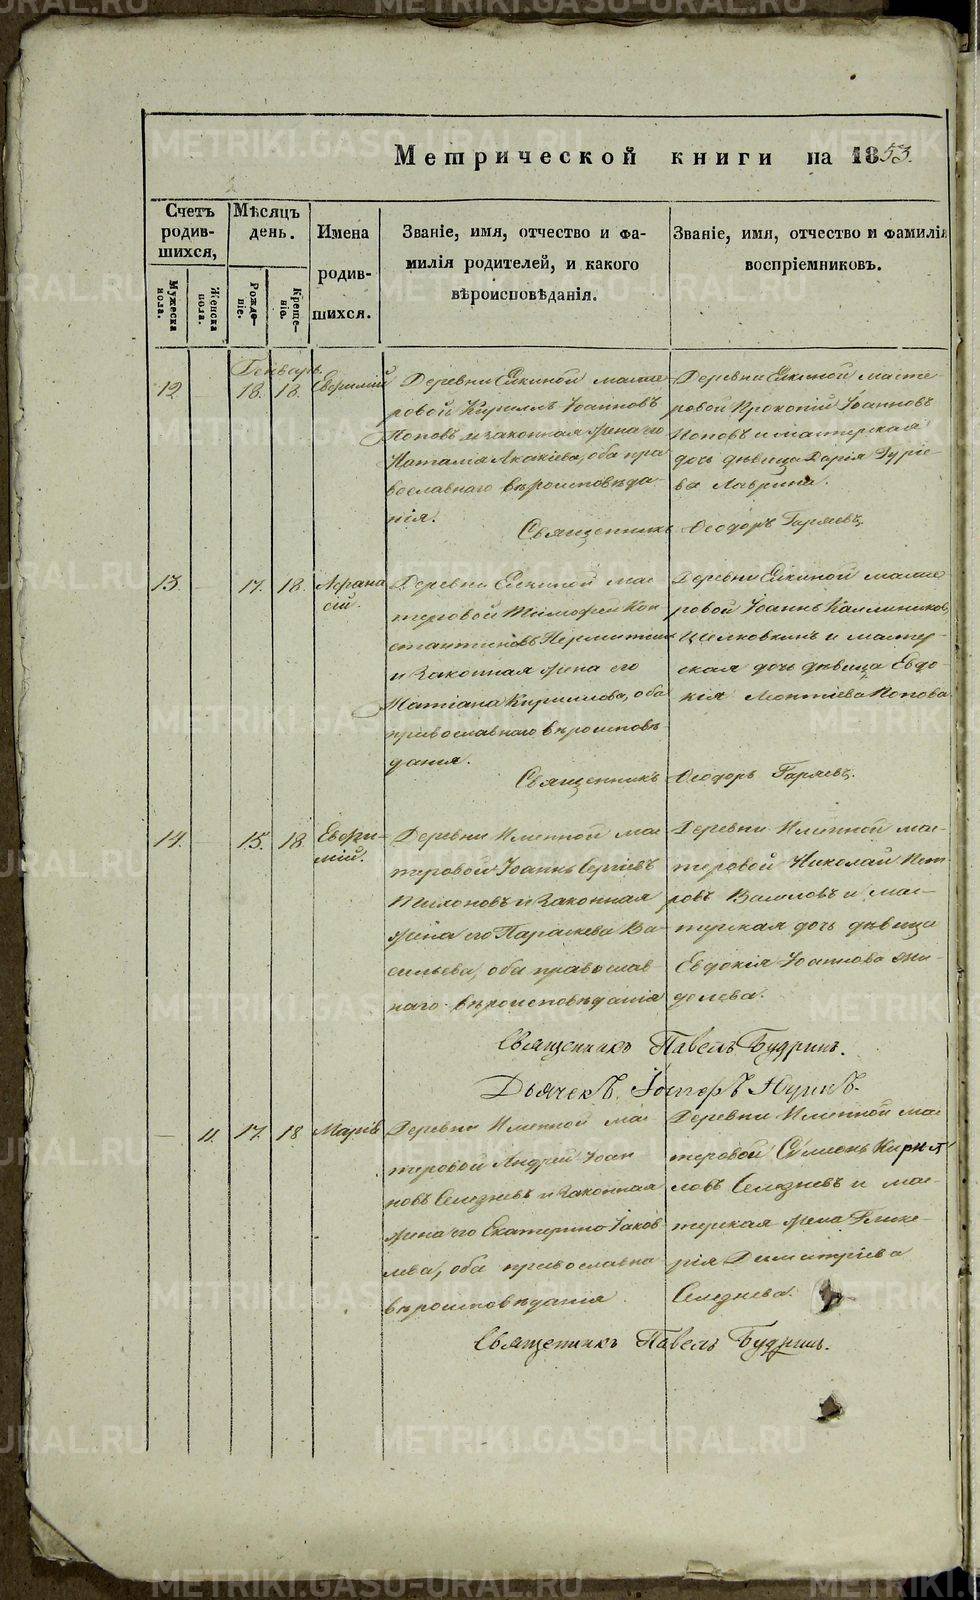 Метрической книги на 1853.
Счетъ родив-шихся,
Мужеска пола.
Женска пола.
Мѣсяцъ день.
Рожде-ніе.
Креще-ніе.
Имена родив-шихся.
Званіе, имя, отчество и фа-
милія родителей, и какого
вѣроисповѣданія.
Званіе, имя, отчество и фамилія
воспріемниковъ.
Генварь
12
18.
18.
Евѳимій
Деревни Елкиной масте
ровой Кириллъ Іоанновъ
Поповъ и законная жена его
Наталія Акакіева, оба пра
вославнаго вѣроисповѣда
нія.
Деревни Елкиной масте-
ровой Прокопій Іоанновъ
Поповъ и мастерская
дочь дѣвица Дарія Гуріе-
ва Лаврина.
Священникъ Ѳеодоръ Гаряевъ.
13.
17.
18.
Аѳана
сій.
Деревни Елкиной мас
теровой Тимоѳей Кон
стантиновъ
и законная жена его
Татіана Кириллова, оба
православнаго вѣроисповѣ
данія.
Деревни Елкиной масте
ровой Іоаннъ Каллиниковъ
Целковкинъ и мастер-
ская дочь дѣвица Евдо-
кія Леонтіева Попова
Священникъ Ѳеодоръ Гаряевъ.
14.
15.
18
Евѳи-
мій.
Деревни Именной мас
теровой Іоаннъ Сергіевъ
и законная
жена его Параскева Ва-
сильева, оба православ
наго вѣроисповѣданія
Деревни Именной мас-
теровой Николай Пет
ровъ и мас-
терская дочь дѣвица
Евдокія Іоаннова
Священникъ Павелъ Будринъ.
Дьячекъ
11.
17.
18
Марія
Деревни Именной мас
теровой Андрей Іоан
новъ Селезневъ и законная
жена его Екатерина Іаков
лева, оба православна
вѣроисповѣданія
Деревни Именной мас
теровой Симеонъ Кирил
ловъ Селезневъ и мас-
терская жена Глике-
рія Димитріева
Селезнева.
Священникъ Павелъ Будринъ.
METRIKI.GASO-URAL.RU